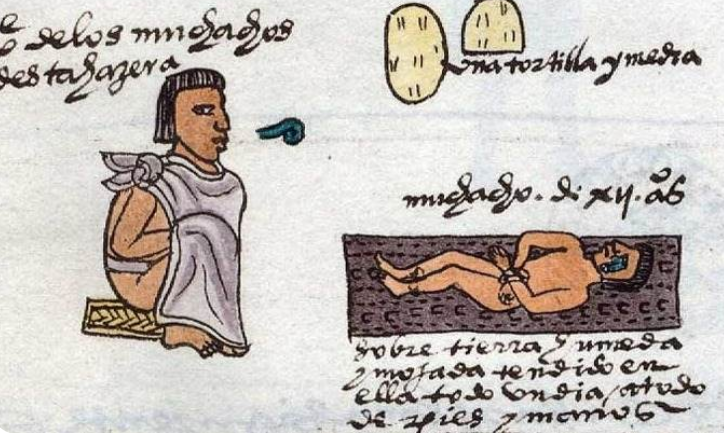 de los muchachos
desta hazera
una tortilla y media
muchacho. de xii. aos
sobre tierra humeda
y mojada tendido en
ella todo un dia / atado
de pies y manos